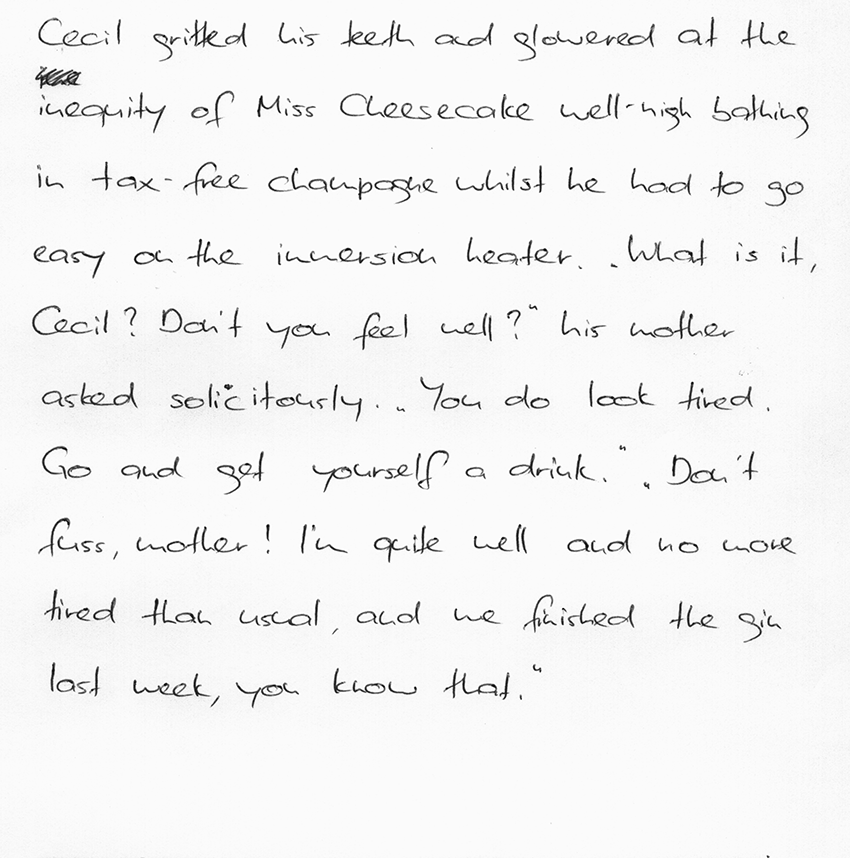 Cecil gritted his teeth and glowered at the
inequity of Miss Cheesecake well-nigh bathing
in tax-free champagne whilst he had to go
easy on the immersion heater. „What is it,
Cecil? Don't you feel well?“ his mother
asked solicitously. „You do look tired.
Go and get yourself a drink.“ „Don't
fuss, mother! I'm quite well and no more
tired than usual, and we finished the gin
last week, you know that.“